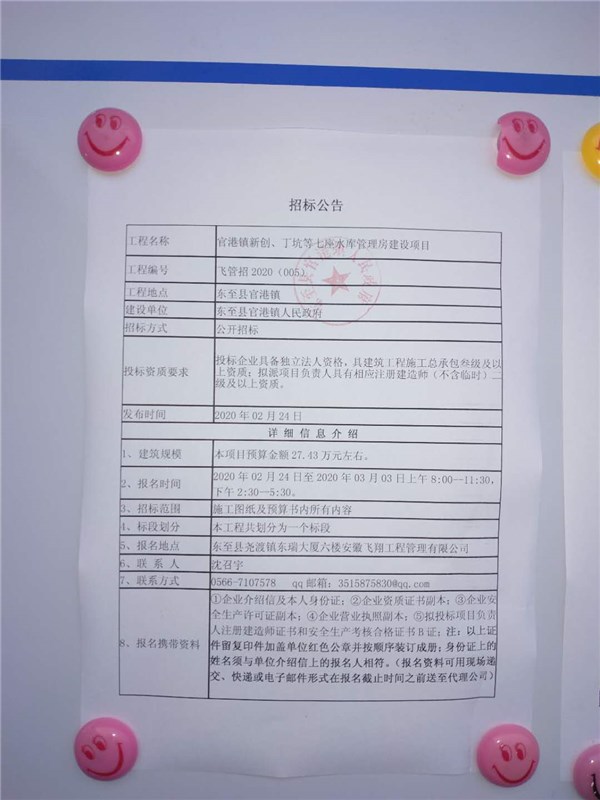 招标公告
工程名称 官港镇新创、丁坑等七座水库管理房建设项目
工程编号 飞管招 2020（005）
工程地点 东至县官港镇
建设单位 东至县官港镇人民政府
招标方式 公开招标
投标资质要求 投标企业具备独立法人资格，具建筑工程施工总承包叁级及以
上资质；拟派项目负责人具有相应注册建造师（不含临时）二
级及以上资质。
发布时间 2020 年 02 月 24 日
详 细 信 息 介 绍
1、建筑规模 本项目预算金额 27.43 万元左右。
2、报名时间 2020 年 02 月 24 日至 2020 年 03 月 03 日上午 8:00—11:30，
下午 2:30—5:30。
3、招标范围 施工图纸及预算书内所有内容
4、标段划分 本工程共划分为一个标段
5、报名地点 东至县尧渡镇东瑞大厦六楼安徽飞翔工程管理有限公司
6、联 系 人 沈召宇
7、联系方式 0566-7107578 qq 邮箱：3515875830@qq.com
8、报名携带资料 ①企业介绍信及本人身份证；②企业资质证书副本；③企业安
全生产许可证副本；④企业营业执照副本；⑤拟投标项目负责
人注册建造师证书和安全生产考核合格证书 B 证；注：以上证
件留复印件加盖单位红色公章并按顺序装订成册；身份证上的
姓名须与单位介绍信上的报名人相符。（报名资料可用现场递
交、快递或电子邮件形式在报名截止时间之前送至代理公司）